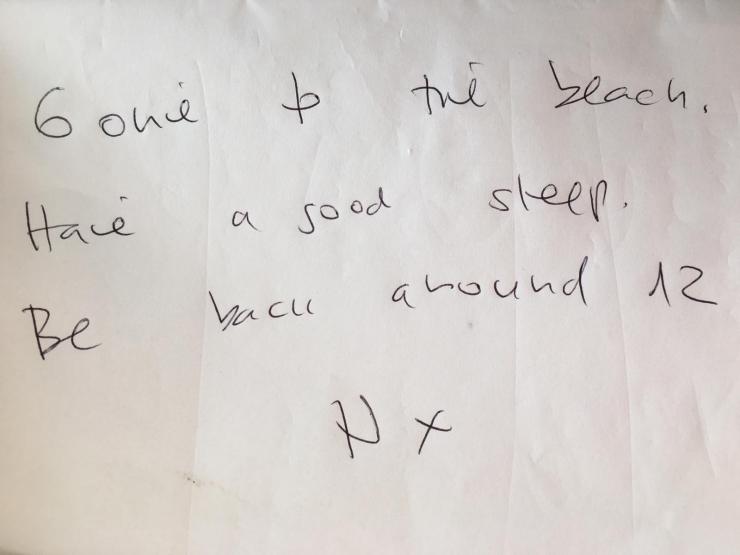 Gone to the beach.
Have a good sleep.
Be back around 12
N x